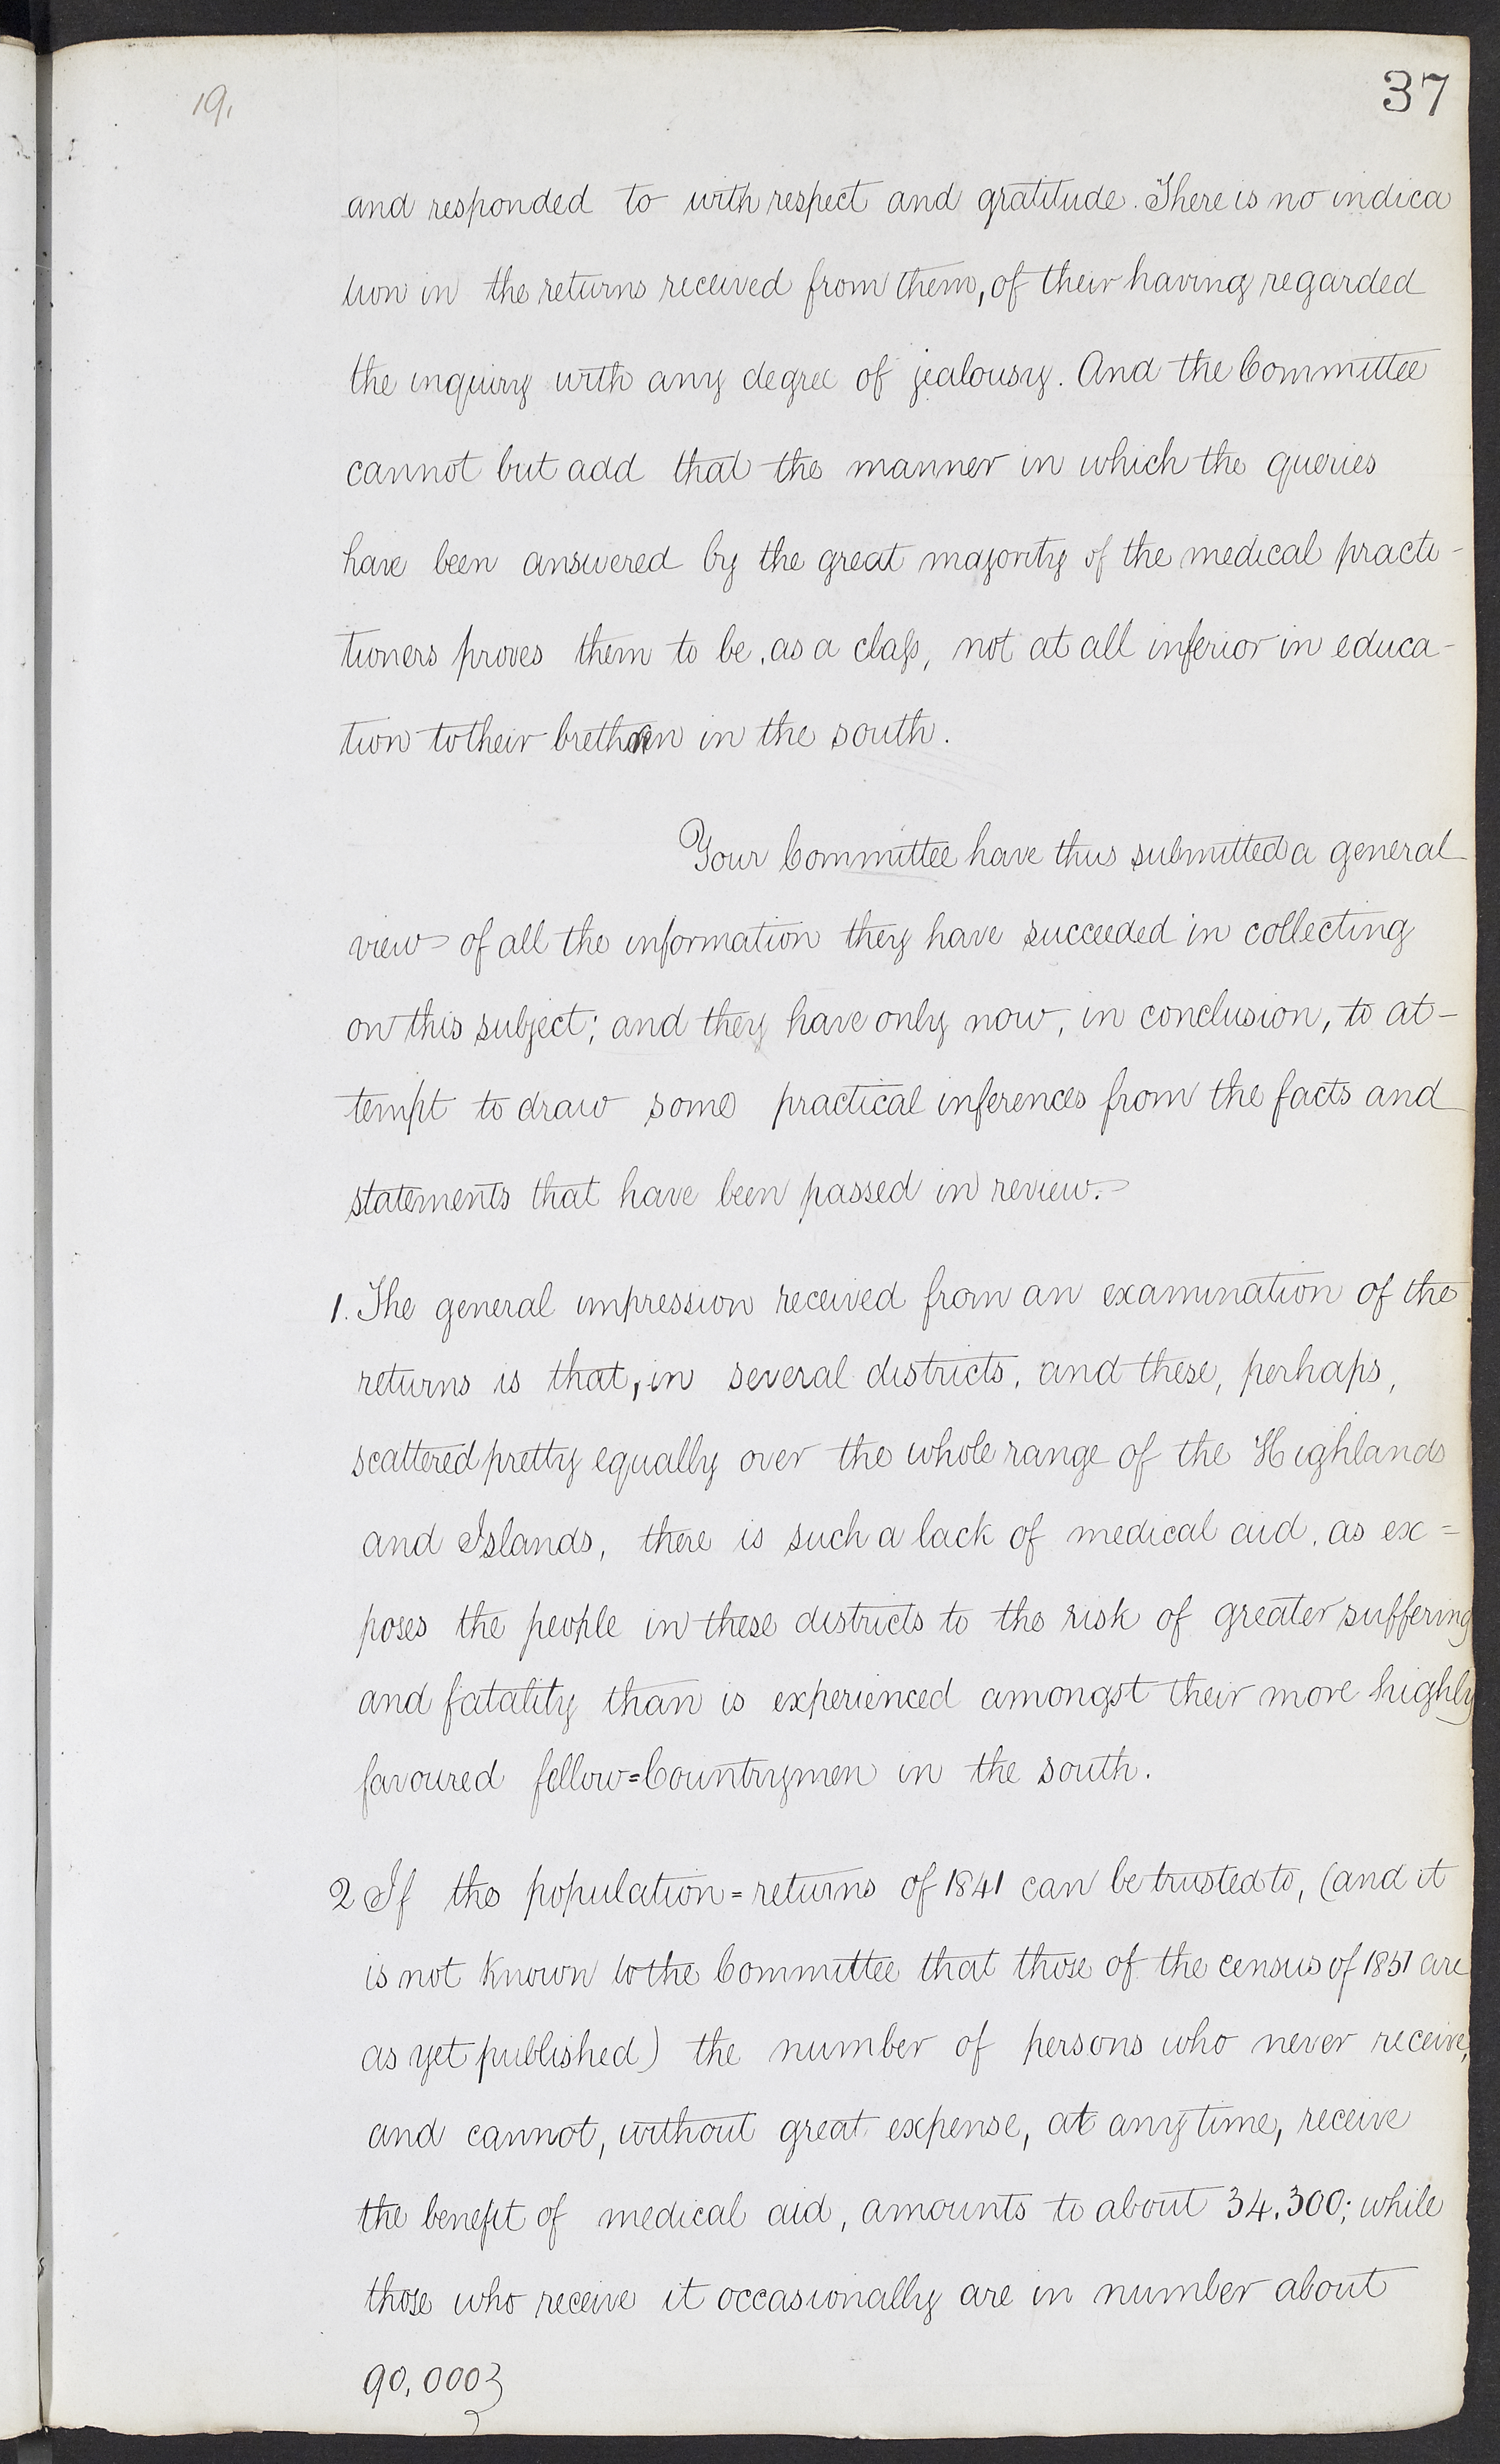 19.
37
and responded to with respect and gratitude. There is no indica
tion in the returns received from them, of their having regarded
the inquiry with any degree of jealousy. And the Committee
cannot but add that the manner in which the queries
have been answered by the great majority of the medical practi-
tioners proves them to be, as a class, not at all inferior in educa-
tion to their brethren in the south.
Your Committee have thus submitted a general
view of all the information they have succeeded in collecting
on this subject; and they have only now, in conclusion, to at-
tempt to draw some practical inferences from the facts and
statements that have been passed in review.
1. The general impression received from an examination of the
returns is that, in several districts, and these, perhaps,
scattered pretty equally over the whole range of the Highlands
and Islands, there is such a lack of medical aid, as ex=
poses the people in these districts to the risk of greater suffering
and fatality than is experienced amongst their more highly
favoured fellow=Countrymen in the south.
2 If the population=returns of 1841 can be trusted to, (and it
is not known to the Committee that those of the census of 1851 are
as yet published) the number of persons who never receive,
and cannot, without great expense, at any time, receive
the benefit of medical aid, amounts to about 34.300; while
those who receive it occasionally are in number about
90,000